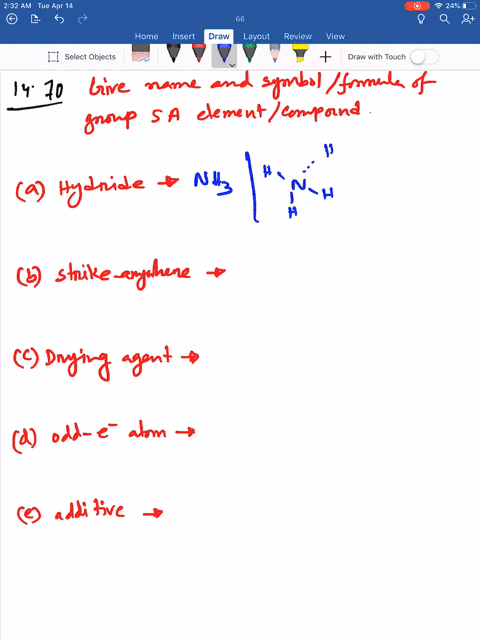 2:32 AM Tue Apr 14
24%
66
Home Insert Draw Layout Review View
Select Objects
Draw with Touch
14.70 Give name and symbol/formula of
group 5A element/compound.
(a) Hydride → NH3
H H
N
H H
(b) strike-anywhere →
(c) Drying agent →
(d) odd-e- atom →
(e) additive →